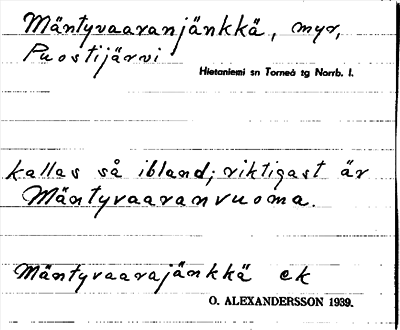 Mäntyvaaranjänkkä, myr,
Puostijärvi
Hietaniemi sn Torneå tg Norrb. l.
kallas så ibland; riktigast är
Mäntyvaaranvuoma.
Mäntyvaarajänkkä ek
O. ALEXANDERSSON 1939.